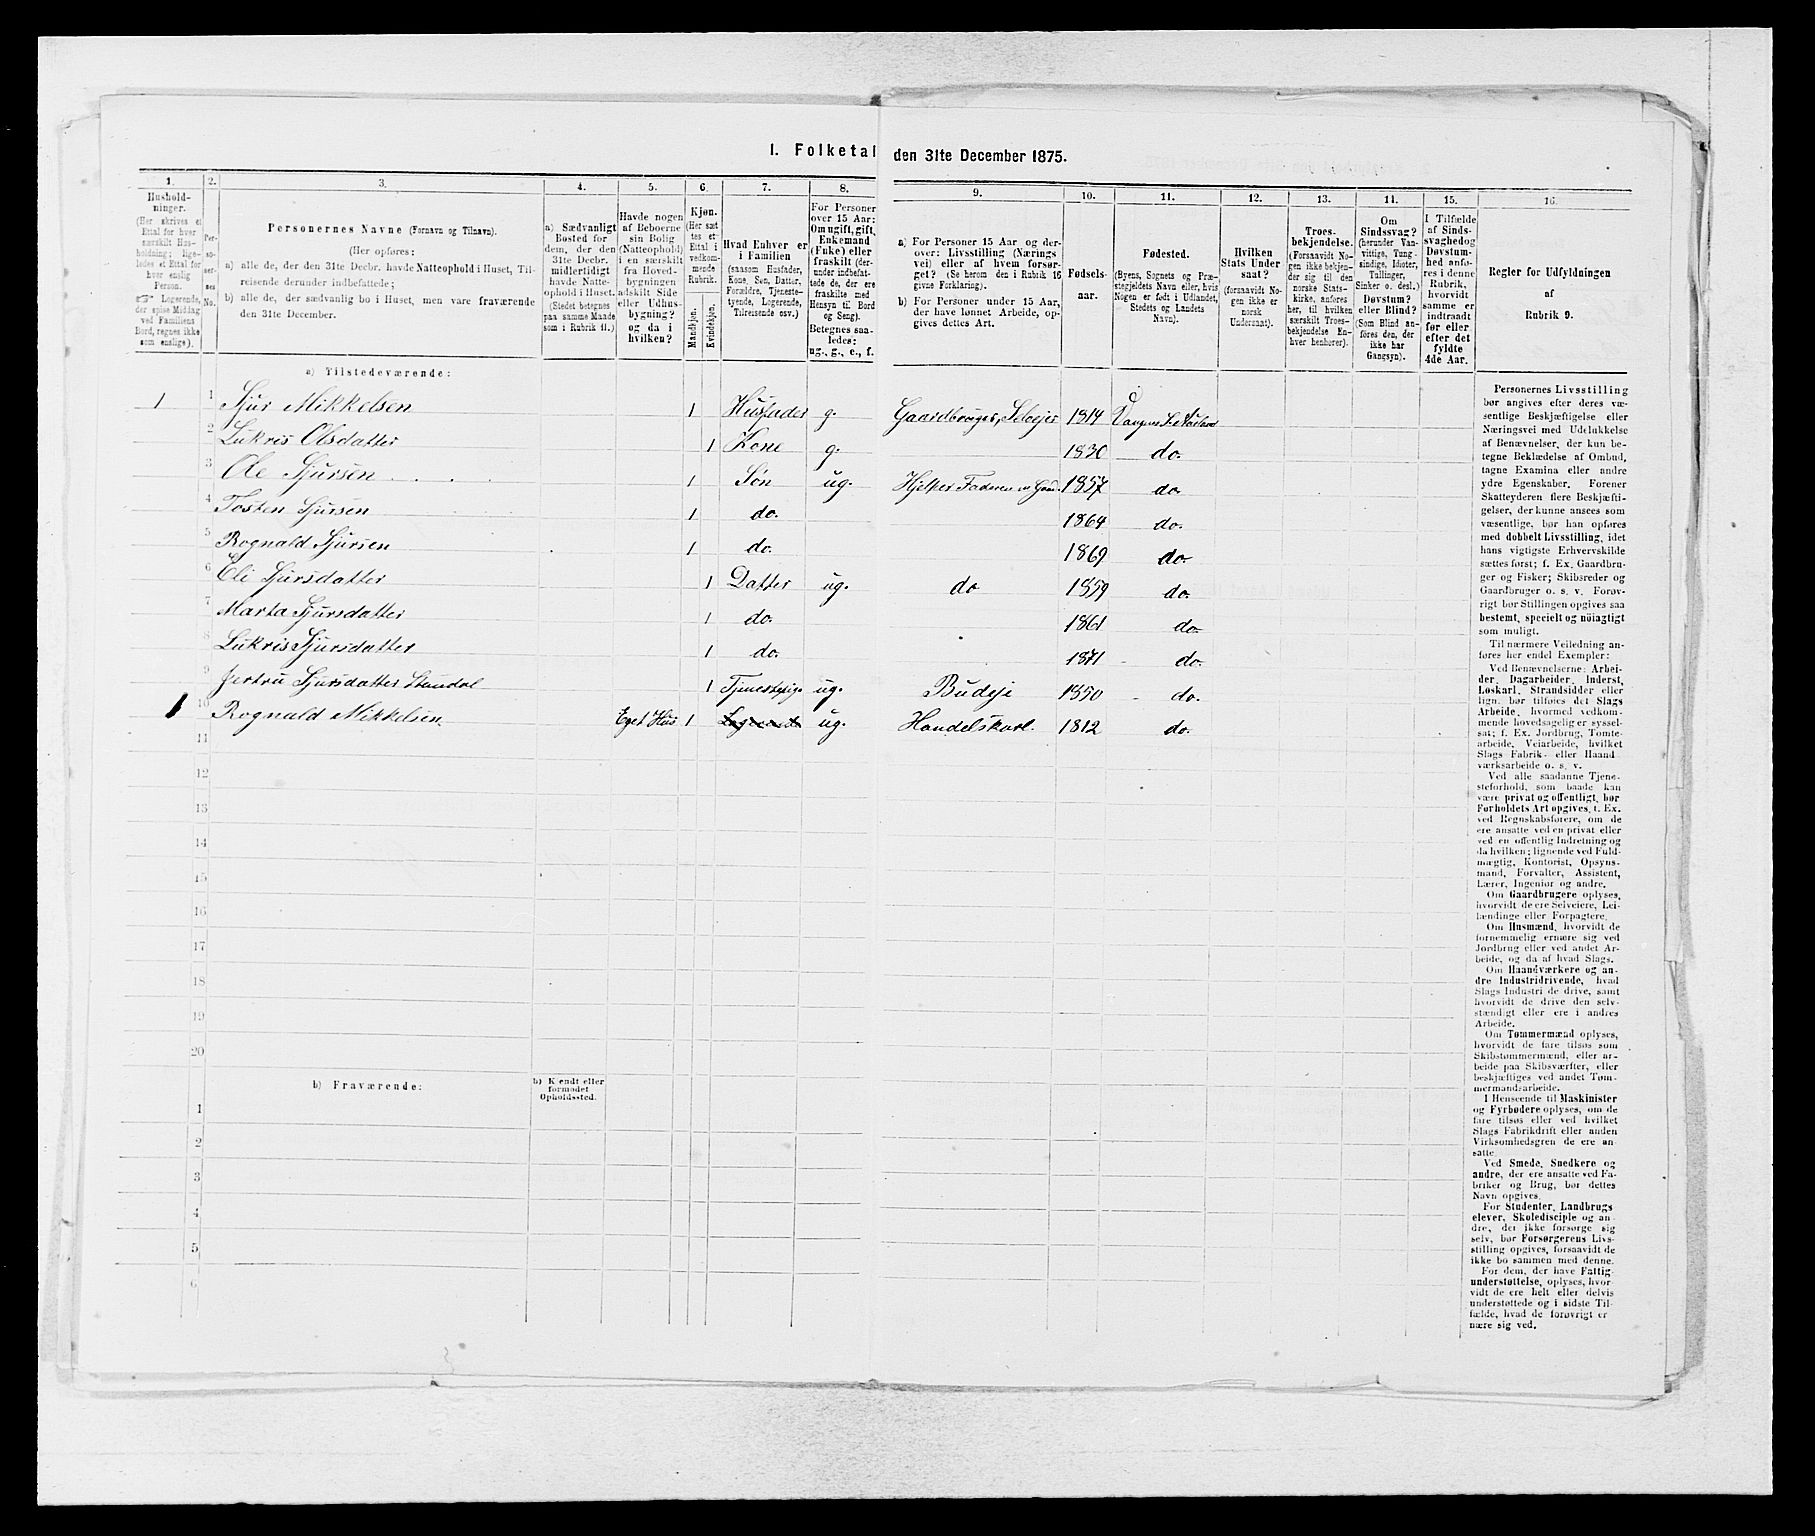 I. Folketal den 31te December 1875.
1. 2. 3. 4. 5. 6. 7. 8. 9. 10. 11. 12. 13. 14. 15. 16.
Husholdninger.
(Her skrives et
Ettal for hver
særskilt Husholdning;
ligeledes et Ettal for
hver enslig
Person.
Logerende,
der spise Middag
ved Familiens
Bord, regnes ikke
som enslige).
Personernes No.
Personernes Navne (Fornavn og Tilnavn).
(Her opføres:
a) alle de, der den 31te Decbr. havde Natteophold i Huset, Tilreisende derunder indbefattede;
b) alle de, der sædvanlig bo i Huset, men vare fraværende
den 31te December.
a) Sædvanligt
Bosted for
dem, der den
31te Decbr.
midlertidigt
havde Natteophold i Huset.
(Stedet betegnes
paa samme Maade
som i Rubrik 11.)
Havde nogen
af Beboerne
sin Bolig
(Natteophold)
i en særskilt
fra Hovedbygningen
adskilt Side
eller Udhusbygning?
og da i
hvilken?
Kjøn.
(Her sættes et
Ettal i
vedkommende
Rubrik.
Mandkjøn.
Kvindekjøn.
Hvad Enhver er
i Familien
(saasom Husfader,
Kone, Søn, Datter,
Forældre, Tjenestetyende, Logerende,
Tilreisende osv.)
For Personer
over 15 Aar:
Om ugift, gift,
Enkemand
(Enke) eller
fraskilt (derunder indbefattede de, der ere
fraskilte med
Hensyn til Bord
og Seng).
Betegnes saaledes:
ug., g., e., f.
a) For Personer 15 Aar og derover: Livsstilling (Næringsvei) eller af hvem forsørget? (Se herom den i Rubrik 16
givne Forklaring).
b) For Personer under 15 Aar,
der have lønnet Arbeide, opgives dettes Art.
Fødselsaar.
Fødested.
(Byens, Sognets og Præstegjeldets Navn eller, hvis
Nogen er født i Udlandet,
Stedets og Landets
Navn).
Hvilken
Stats Undersaat?
(forsaavidt Nogen ikke er
norsk
Undersaat).
Troesbekjendelse.
(Forsaavidt Nogen ikke bekjender sig til den
norske Statskirke, anføres
her, til hvilken
særskilt Troesbekjendelse Enhver henhører).
Om
Sindssvag?
(herunder Vanvittige, Tungsindige, Idioter,
Tullinger,
Sinker o. desl.)
Døvstum?
eller Blind?
(Som Blind anføres den, der
ikke har
Gangsyn).
I Tilfælde
af Sindssvaghed og
Døvstumhed anføres i denne
Rubrik,
hvorvidt
samme er
indtraadt
før eller
efter det
fyldte
4de Aar.
Regler for Udfyldningen
af
Rubrik 9.
a) Tilstedeværende:
1 1 Sjur Mikkelsen 1 Husfader g. Gaardbruger, Selvejer 1814
2 Lukris Olsdatter 1 Kone g. 1830 do.
3 Ole Sjursen 1 Søn ug. Hjelper Faderen 1857 do.
4 Tosten Sjursen 1 do. 1864 do.
5 Rognald Sjursen 1 do. 1869 do.
6 Eli Sjursdatter 1 Datter ug. do 1859 do.
7 Marta Sjursdatter 1 do. 1861 do.
8 Lukris Sjursdatter 1 do. 1871 do.
9 Jertru Sjursdatter Stendal 1 ug. Budeje 1850 do.
1 10 Rognald Mikkelsen Eget Hus 1 Logerende ug. Handelskarl. 1812 do.
11
12
13
14
15
16
17
18
19
20
b) Fraværende:
b) Kjendt eller
formodet
Opholdssted.
1
2
3
4
5
6
Personernes Livsstilling
bør angives efter deres væsentlige Beskjæftigelse eller
Næringsvei med Udelukkelse
af Benævnelser, der kun betegne Beklædelse af Ombud,
tagne Examina eller andre
ydre Egenskaber. Forener
Skatteyderen flere Beskjæftigelser, der kunne ansees som
væsentlige, bør han opføres
med dobbelt Livsstilling, idet
hans vigtigste Erhvervskilde
sættes først; f. Ex. Gaardbruger og Fisker; Skibsreder og
Gaardbruger o. s. v. Forøvrigt bør Stillingen opgives saa
bestemt, specielt og nøiagtigt
som muligt.
Til nærmere Veiledning anføres her endel Exempler:
Ved Benævnelserne: Arbeider, Dagarbeider, Inderst,
Løskarl, Strandsidder eller
lign. bør tilføies det Slags
Arbeide, hvormed vedkommende hovedsagelig er sysselsat; f. Ex. Jordbrug, Tomtearbeide, Veiarbeide, hvilket
Slags Fabrik- eller Haandværksarbeide o. s. v.
Ved alle saadanne Tjenesteforhold, som baade kan
være privat og offentligt, bør
Forholdets Art opgives, f. Ex.
ved Regnskabsførere, om de
ere ansatte ved en privat eller
ved en offentlig Indretning og
da hvilken; lignende ved Fuldmægtig, Kontorist, Opsynsmand, Forvalter, Assistent,
Lærer, Ingeniør og andre.
Om Gaardbrugere oplyses,
hvorvidt de ere Selveiere, Leilændinge eller Forpagtere.
Om Husmænd, hvorvidt de
fornemmelig ernære sig ved
Jordbrug eller ved andet Arbeide, og da af hvad Slags.
Om Haandværkere og andre Industridrivende, hvad
Slags Industri de drive, samt
hvorvidt de drive den selvstændigt eller ere i andres
Arbeide.
Om Tømmermænd oplyses,
hvorvidt de fare tilsøs som
Skibstømmermænd, eller arbeide paa Skibsværfter, eller
beskjæftiges ved andet Tømmermandsarbeide.
I Henseende til Maskinister
og Fyrbødere oplyses, om de
fare tilsøs eller ved hvilket
Slags Fabrikdrift eller anden
Virksomhedsgren de ere ansatte.
Ved Smede, Snedkere og
andre, der ere ansatte ved Fabriker og Brug, bør dettes
Navn opgives.
For Studenter, Landbrugselever, Skoledisciple og andre, der ikke forsørge sig
selv, bør Forsørgerens Livsstilling opgives, forsaavidt de
ikke bo sammen med denne.
For dem, der have Fattigunderstøttelse, oplyses, hvorvidt de ere helt eller delvis
understøttede og i sidste Tilfælde, hvad de forøvrigt ernære sig ved.